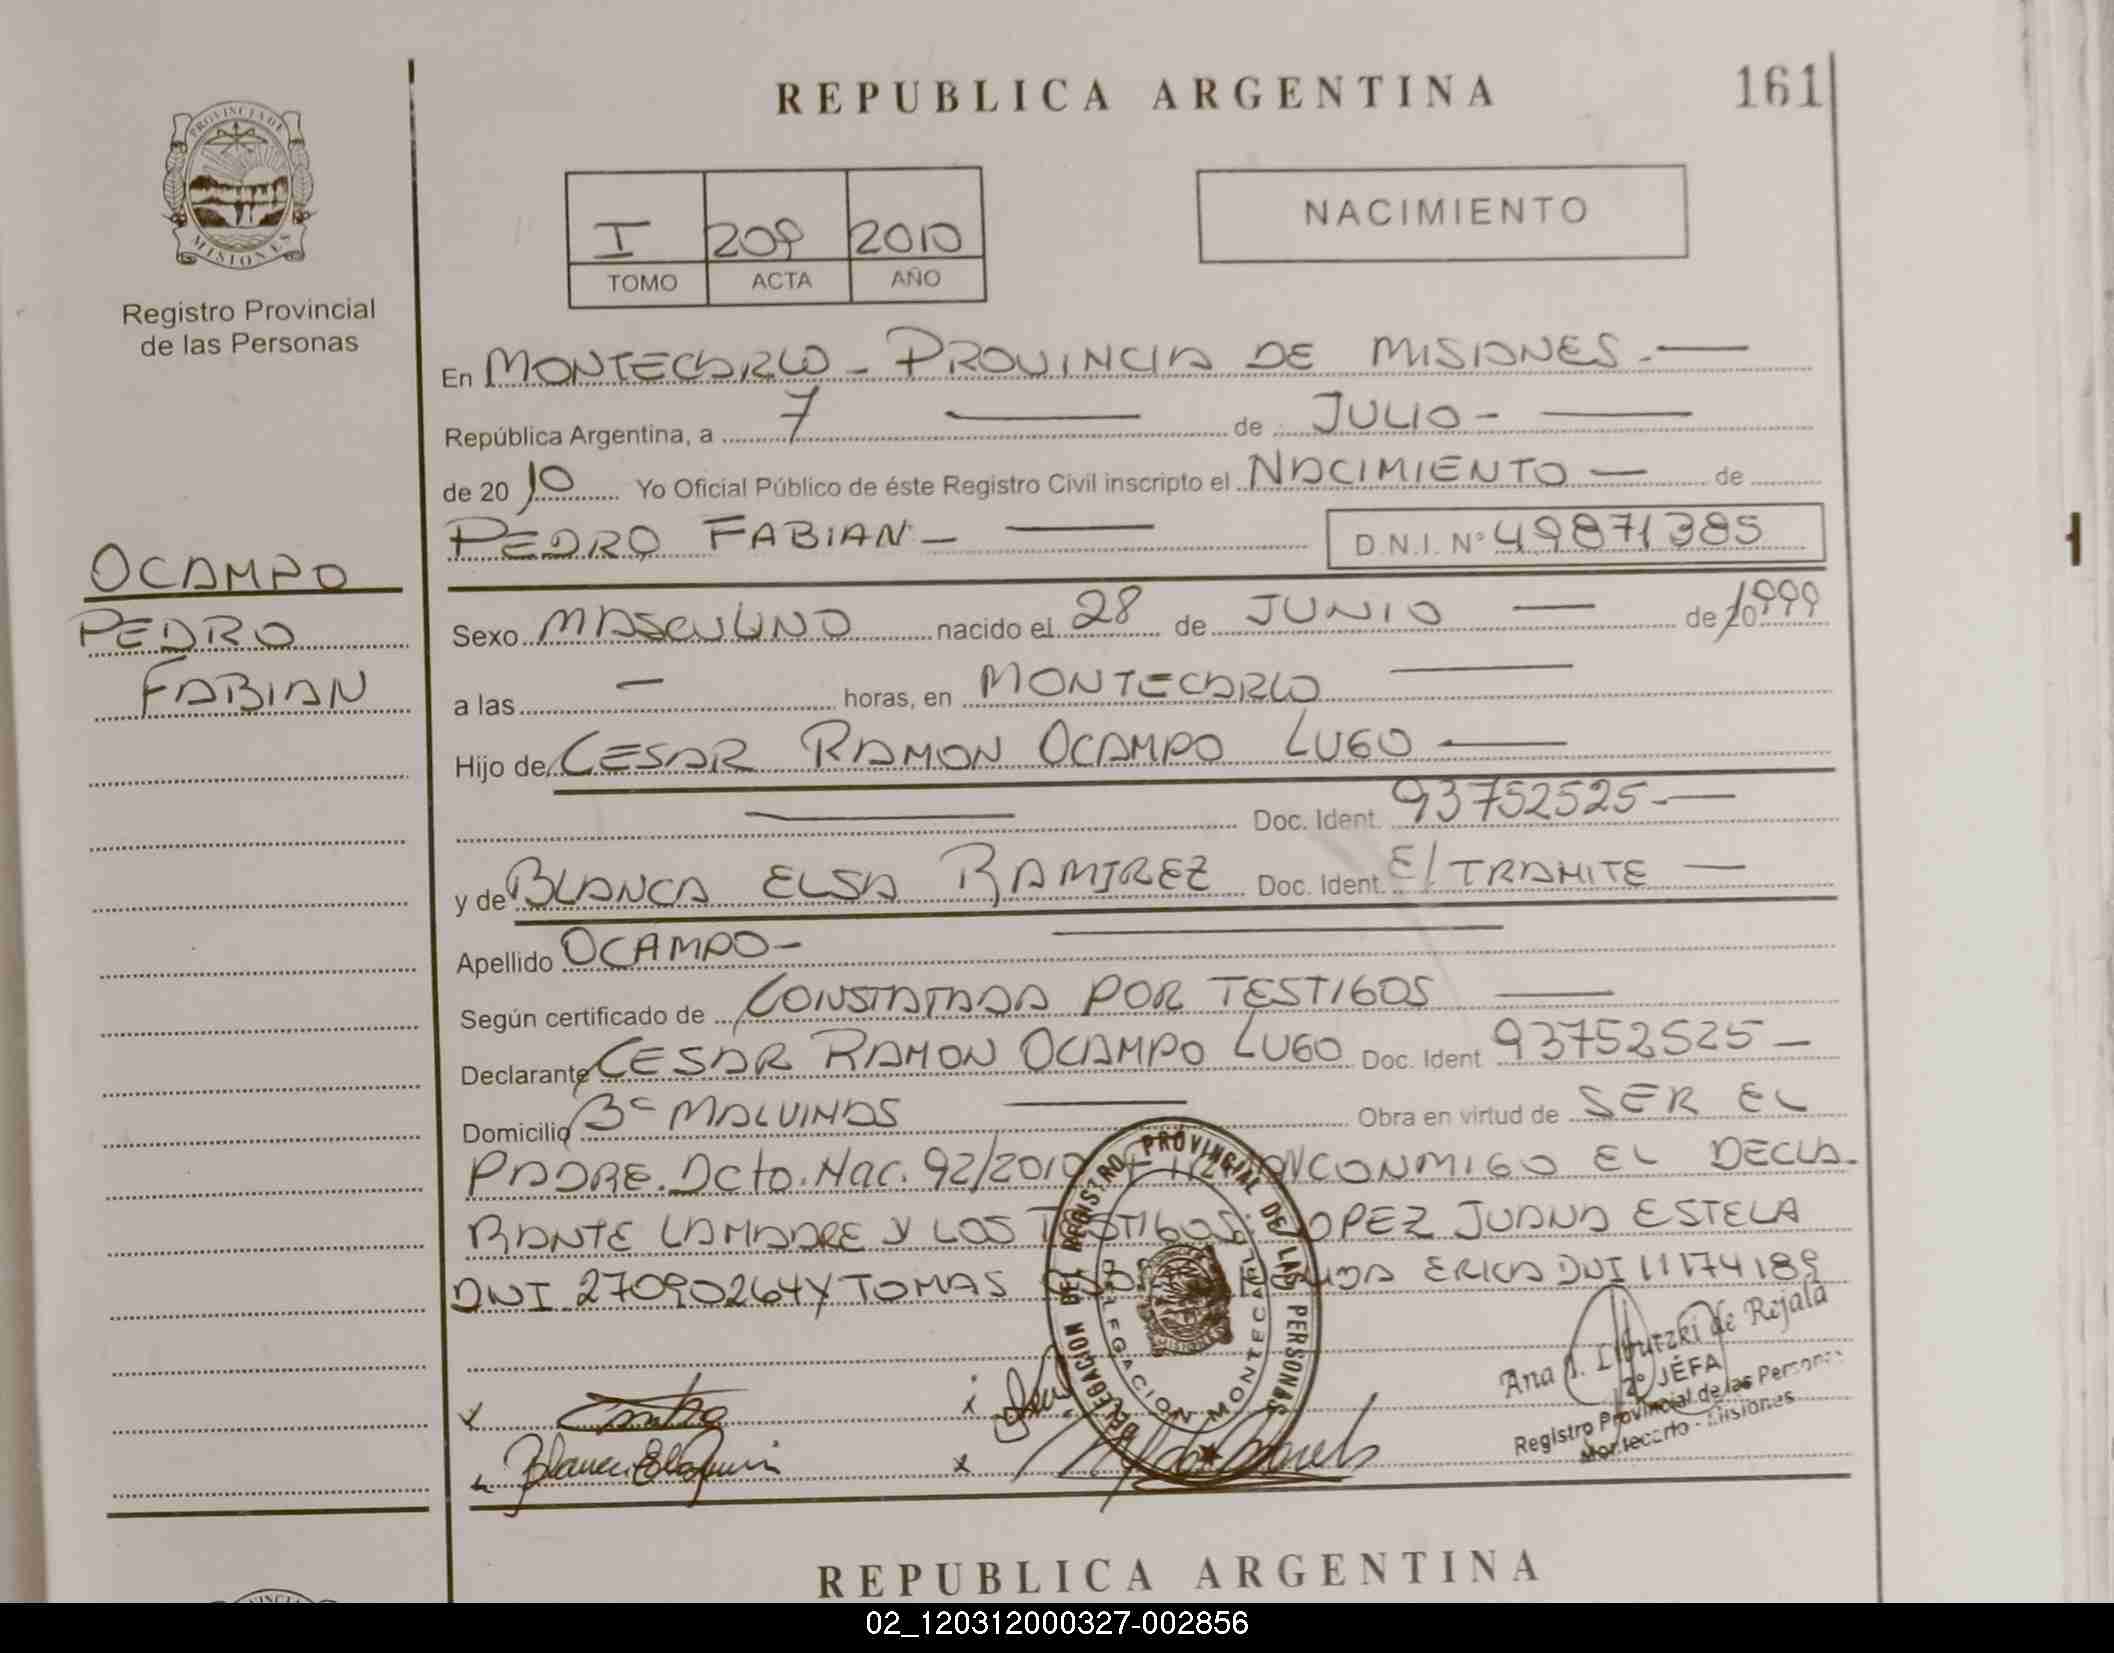 REPUBLICA ARGENTINA
161
PROVINCIA DE
MISIONES
Registro Provincial
de las Personas
I 209 2010
TOMO ACTA AÑO
NACIMIENTO
En MONTECARLO - PROVINCIA DE MISIONES.-
República Argentina, a 7 de JULIO -
de 2010 Yo Oficial Público de éste Registro Civil inscripto el NACIMIENTO - de
PEDRO FABIAN - D.N.I. Nº 49871385
OCAMPO
PEDRO
FABIAN
Sexo MASCULINO nacido el 28 de JUNIO - de 20 1999
a las - horas, en MONTECARLO
Hijo de CESAR RAMON OCAMPO LUGO -
Doc. Ident. 93752525.-
y de BLANCA ELSA RAMIREZ Doc. Ident. E/TRAMITE -
Apellido OCAMPO -
Según certificado de CONSTATADA POR TESTIGOS
Declarante CESAR RAMON OCAMPO LUGO Doc. Ident 93752525 -
Domicilio Bº MALVINAS Obra en virtud de SER EL
PADRE. Dcto. Nac. 92/2010 CONMIGO EL DECLA-
RANTE LA MADRE Y LOS TESTIGOS: LOPEZ JUANA ESTELA
DNI 27090264 Y TOMAS ERICA DNI 11174189
DELEGACION DEL REGISTRO PROVINCIAL DE LAS PERSONAS
DELEGACION MONTECARLO
Ana de Rejala
2º JEFA
Registro Provincial de las Personas
Montecarlo - Misiones
REPUBLICA ARGENTINA
02_120312000327-002856